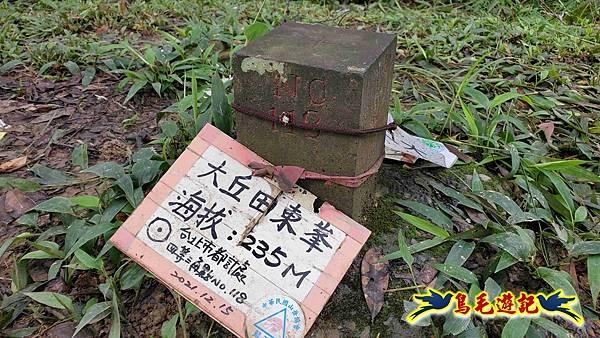 NO
118
大丘田東峯
海拔:235M
台北市都計處
四等三角點No.118
2021.12.15
鳥毛遊記